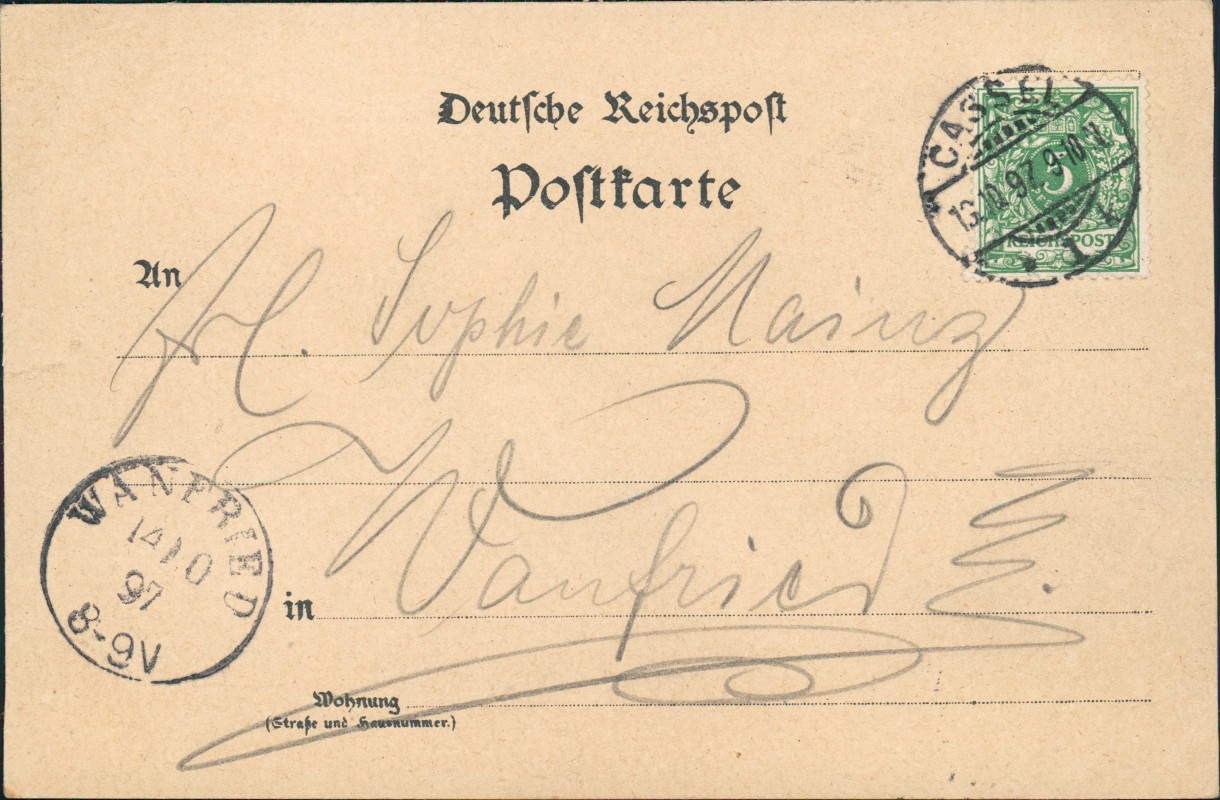 Deutsche Reichspost
Postkarte
CASSEL
13.10.97. 9-10 V.
1
REICHSPOST
An Frl. Sophie Mainz
WANFRIED
14 10
97
8-9V
in Wanfried
Wohnung
(Straße und Hausnummer.)